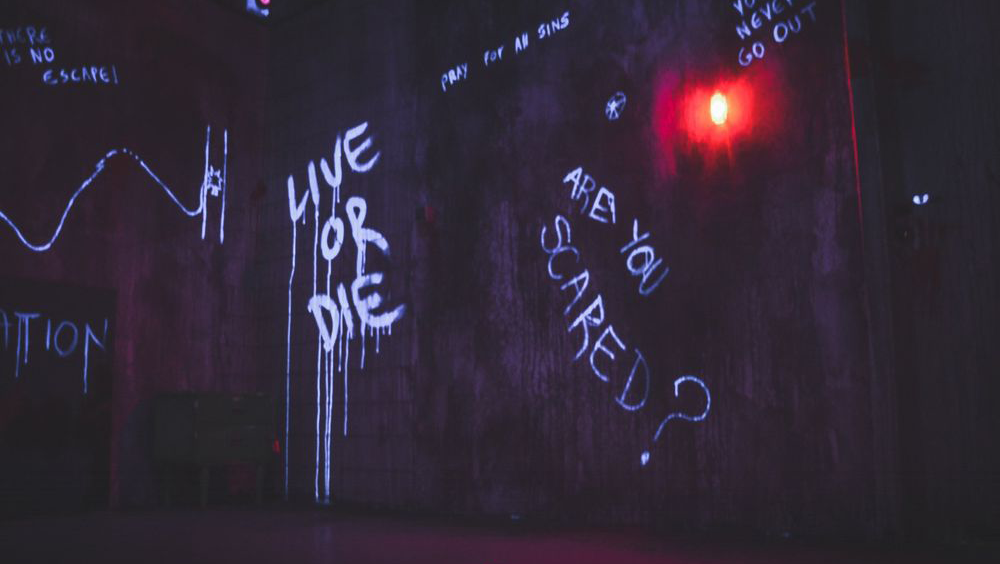 THERE
IS NO
ESCAPE!
PRAY FOR All SINS
NEVER
GO OUT
LIVE
OR
DIE
ARE YOU
SCARED?
ATION